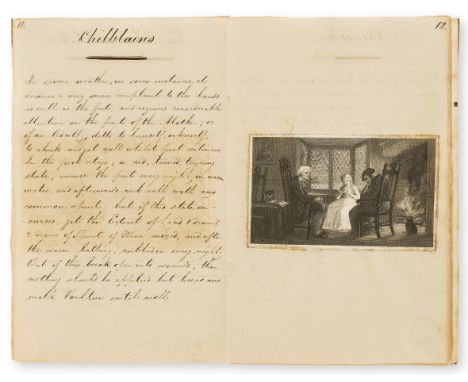 11.
Chilblains
In severe weather, in some instances, it
becomes a very severe complaint to the hands
as well as the feet, and requires considerable
attention on the part of the Mother, or
if an to himself, or herself,
to check and get well whilst frost continues.
In the first stage, a red, tingling
state, immerse the part every night in warm
water, and afterwards rub well with any
common spirit, but if this state in-
creases, get the Extract of Lead
of Spirit of Wine mixed, and after
the warm bathing, rubbed in every night.
But if they break open into wounds, then
nothing should be applied but bread and
milk Poultice until well
12.